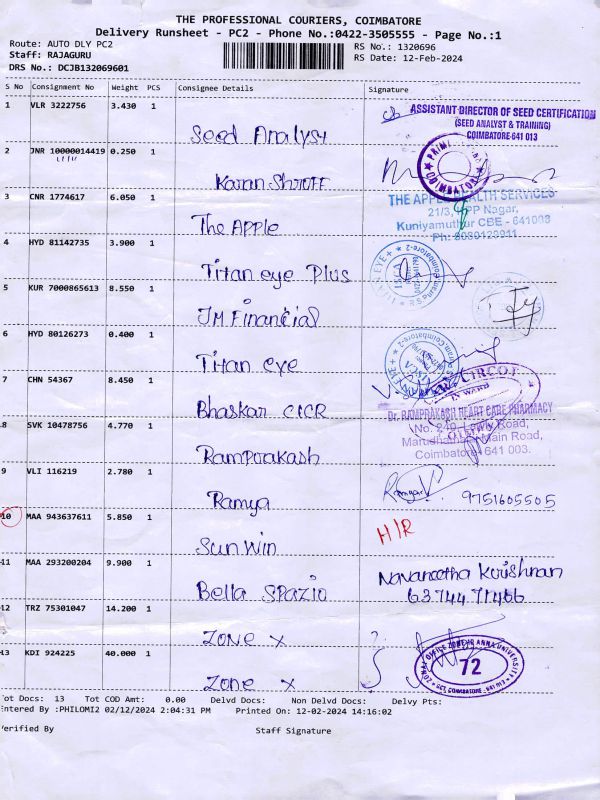 THE PROFESSIONAL COURIERS, COIMBATORE
Delivery Runsheet - PC2 - Phone No.:0422-3505555 - Page No.:1
Route: AUTO DLY PC2
RS No.: 1320696
Staff: RAJAGURU
RS Date: 12-Feb-2024
DRS No.: DCJB132069601
S No Consignment No Weight PCS Consignee Details Signature
1 VLR 3222756 3.430 1
Seed Analyst
ASSISTANT DIRECTOR OF SEED CERTIFICATION
(SEED ANALYST & TRAINING)
COIMBATORE-641 013
2 JNR 10000014419 0.250 1
Karan Shroff
COIMBATORE
3 CNR 1774617 6.050 1
The Apple
THE APPLE HEALTH SERVICES
21/3, PP Nagar,
Kuniyamuthur CBE - 641008
4 HYD 81142735 3.900 1
Titan eye Plus
TITAN EYE+
5 KUR 7000865613 8.550 1
JM Financial
6 HYD 80126273 0.400 1
Titan eye
7 CHN 54367 8.450 1
Bhaskar CICR
CIRCOT
IN WARD
8 SVK 10478756 4.770 1
Ramprakash
Dr. RAMPRAKASH HEART CARE PHARMACY
No. 249, Lawly Road,
Marudhamalai Main Road,
Coimbatore - 641 003.
9 VLI 116219 2.780 1
Ramya
9751605505
10 MAA 943637611 5.850 1
Sunwin
H/R
11 MAA 293200204 9.900 1
Bella Spazio
Navaneetha Krishnan
6374471466
12 TRZ 75301047 14.200 1
Zone X
13 KDI 924225 40.000 1
Zone X
ZONAL OFFICE ZONE-IX ANNA UNIVERSITY
72
Tot Docs: 13 Tot COD Amt: 0.00 Delvd Docs: Non Delvd Docs: Delvy Pts:
Entered By :PHILOMI2 02/12/2024 2:04:31 PM Printed On: 12-02-2024 14:16:02
Verified By Staff Signature